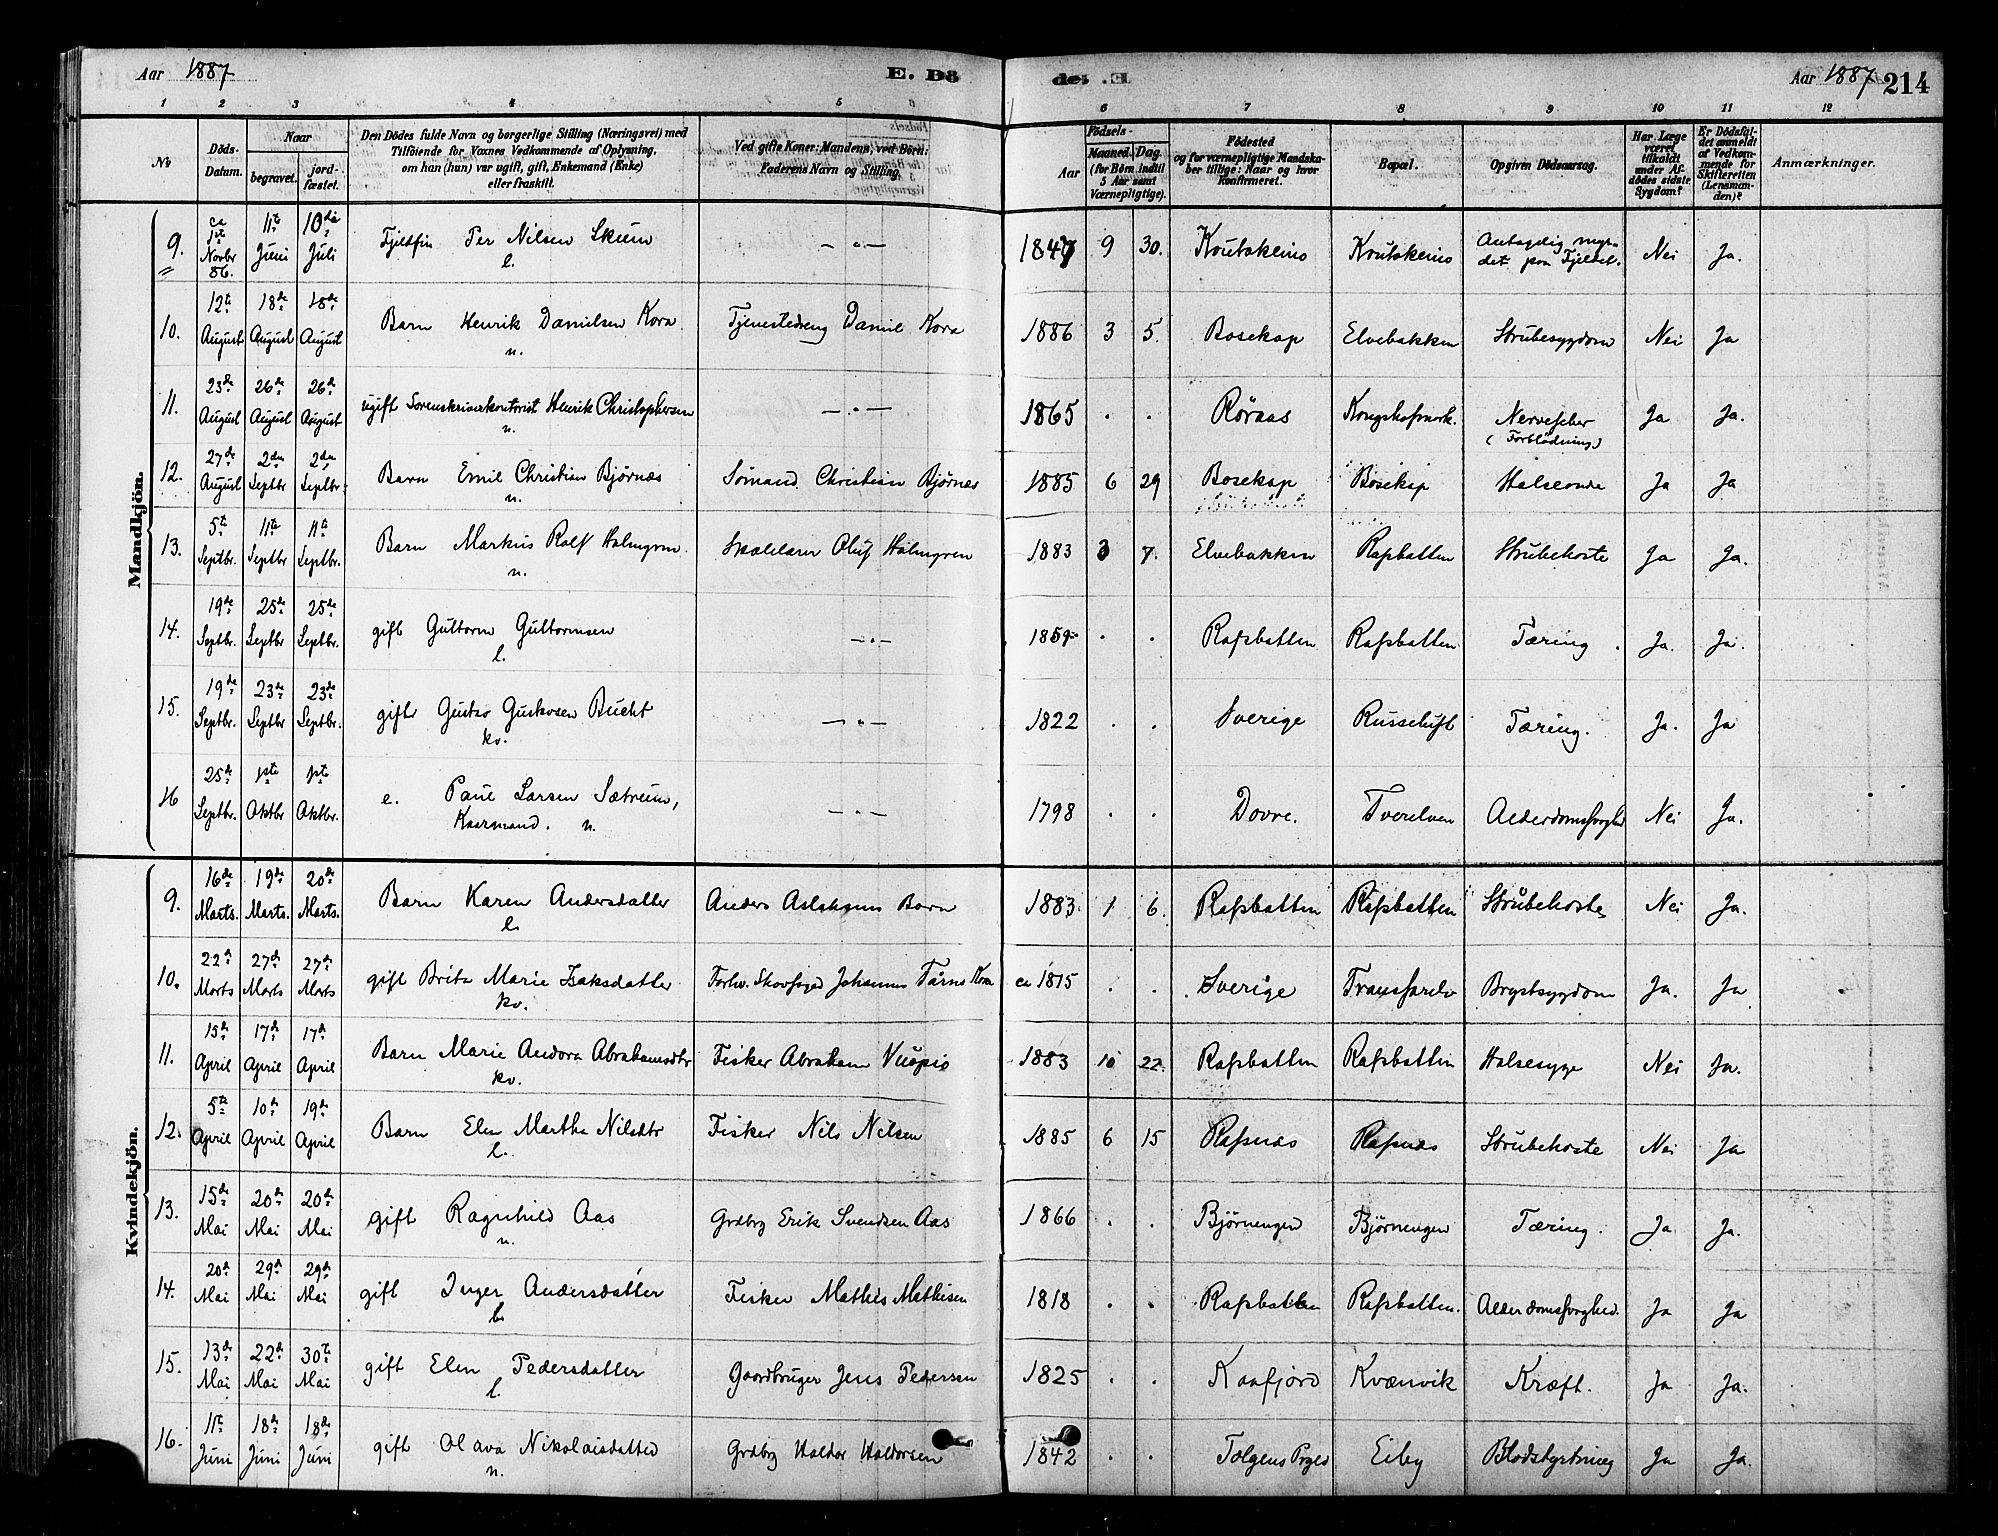 Aar 1887 E. Dö
de. Aar 1887 214
1 2 3 4 5 6 7 8 9 10 11 12
No
Döds-
Datum.
Naar
begravet.
jord-
fæstet.
Den Dödes fulde Navn og borgerlige Stilling (Næringsvei) med
Tilföiende for Voxnes Vedkommende af Oplysning,
om han (hun) var ugift, gift, Enkemand (Enke)
eller fraskilt.
Ved gifte Koner: Mandens, ved Börn:
Faderens Navn og Stilling.
Födsels-
Aar
Maaned. Dag.
(for Börn indtil
5 Aar samt
Værnepligtige).
Födested
og for værnepligtige Mandska-
ber tillige: Naar og hvor
Konfirmeret.
Bopæl.
Opgiven Dödsaarsag.
Har Læge
været
tilkaldt
under Af-
dödes sidste
Sygdom?
Er Dödsfal-
det anmeldt
af Vedkom-
mende for
Skifteretten
(Lensman-
den)?
Anmærkninger.
Mandkjön.
9. ca 1ste Novbr 86. 11te Juni 10de Juli Fjeldfin Per Nilsen Skum — " — 1847 9 30. Koutokeino Koutokeino Antagelig myr- Nei Ja.
l. det paa Fjeldet.
10. 12te August 18de August 18de August Barn Henrik Danielsen Kora Tjenestedreng Daniel Kora 1886 3 5. Bosekop Elvebakken Strubesygdom Nei Ja
n.
11. 23de August 26de August 26de August ugift Sorenskriverkontorist Henrik Christophersen — " — 1865 . . Röraas Kongshofmark. Nervefeber Ja Ja.
n. (Forblødning)
12. 27de August 2den Septbr 2den Septbr Barn Emil Christian Bjørnæs Sömand Christian Bjørnæs 1885 6 29 Bosekop Bosekop Halseonde Ja Ja
n.
13. 5te Septbr. 11te Septbr 11te Septbr. Barn Markus Rolf Holmgren. Skolelærer Oluf Holmgren 1883 3 7. Elvebakken Rafsbotten Strubehoste Ja Ja.
n.
14. 19de Septbr. 25de Septbr 25de Septbr. gift Guttorm Guttormsen — " — 1859 . . Rafsbotten Rafsbotten Tæring . Ja. Ja.
l.
15. 19de Septbr. 23de Septbr 23de Septbr. gift Gustav Gustavsen Bucht — " — 1822 . . Sverige Russeluft Tæring. Ja. Ja
kv.
16 25de Septbr. 1ste Oktbr 1ste Oktbr. e. Paul Larsen Sætrum, — " — 1798 . . Dovre. Tverelven Alderdomssvaghed Nei Ja.
Kaarmand. n.
Kvindekjön.
9. 16de Marts. 19de Marts. 20de Marts. Barn Karen Andersdatter Anders Aslaksens Barn 1883. 1 6. Rafsbotten Rafsbotten Strubehoste Nei Ja.
l.
10. 22de Marts 27de Marts 27de Marts gift Brita Marie Isaksdatter Forhv. Skovfoged Johannes Kone ca 1815 . . Sverige Bryst­sygdom Ja. Ja
kv.
11. 15de April 17de April 17de April Barn Marie Andora Abrahamsdtr Fisker Abraham Vuopio 1883 10 22. Rafsbotten Rafsbotten Halsesyge Nei Ja.
kv.
12. 5te April 10de April 19de April Barn Elen Martha Nilsdtr Fisker Nils Nilsen 1885 6 15 Rafsnæs Rafsnæs Strubehoste Nei Ja
l.
13. 15de Mai 20de Mai 20de Mai gift Ragnhild Aas Grdbrg Erik Svendsen Aas 1866 . . Björnengen Björnengen Tæring. Ja Ja.
n.
14. 20de Mai 29de Mai 29de Mai gift Inger Andersdatter Fisker Mathis Mathisen 1818 . . Rafsbotten Rafsbotten. Alderdomssvaghed. Ja Ja
l.
15. 13de Mai 22de Mai 30te Mai gift Elen Pedersdatter Gaardbruger Jens Pedersen 1825 . . Kaafjord Kvænvik Kræft. Ja Ja.
l.
16. 11te Juni 18de Juni 18de Juni gift Olava Nikolaisdatter Grdbrg Haldor Haldorsen 1842 . . Tolgens Prgld Eiby Blodstyrtning Ja Ja.
n.